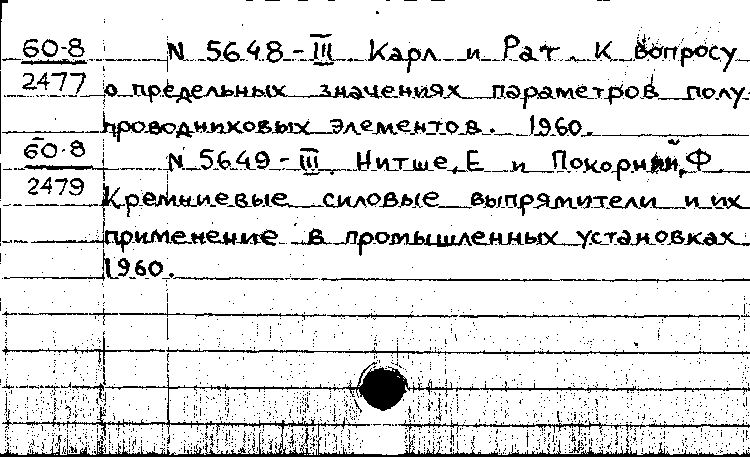 60-8 N 5648-III Карл и Рат. К вопросу
2477 о предельных значениях параметров полу-
проводниковых элементов. 1960.
60-8 N 5649-III. Нитше, Е и Покорный, Ф
2479 Кремниевые силовые выпрямители и их
применение в промышленных установках.
1960.